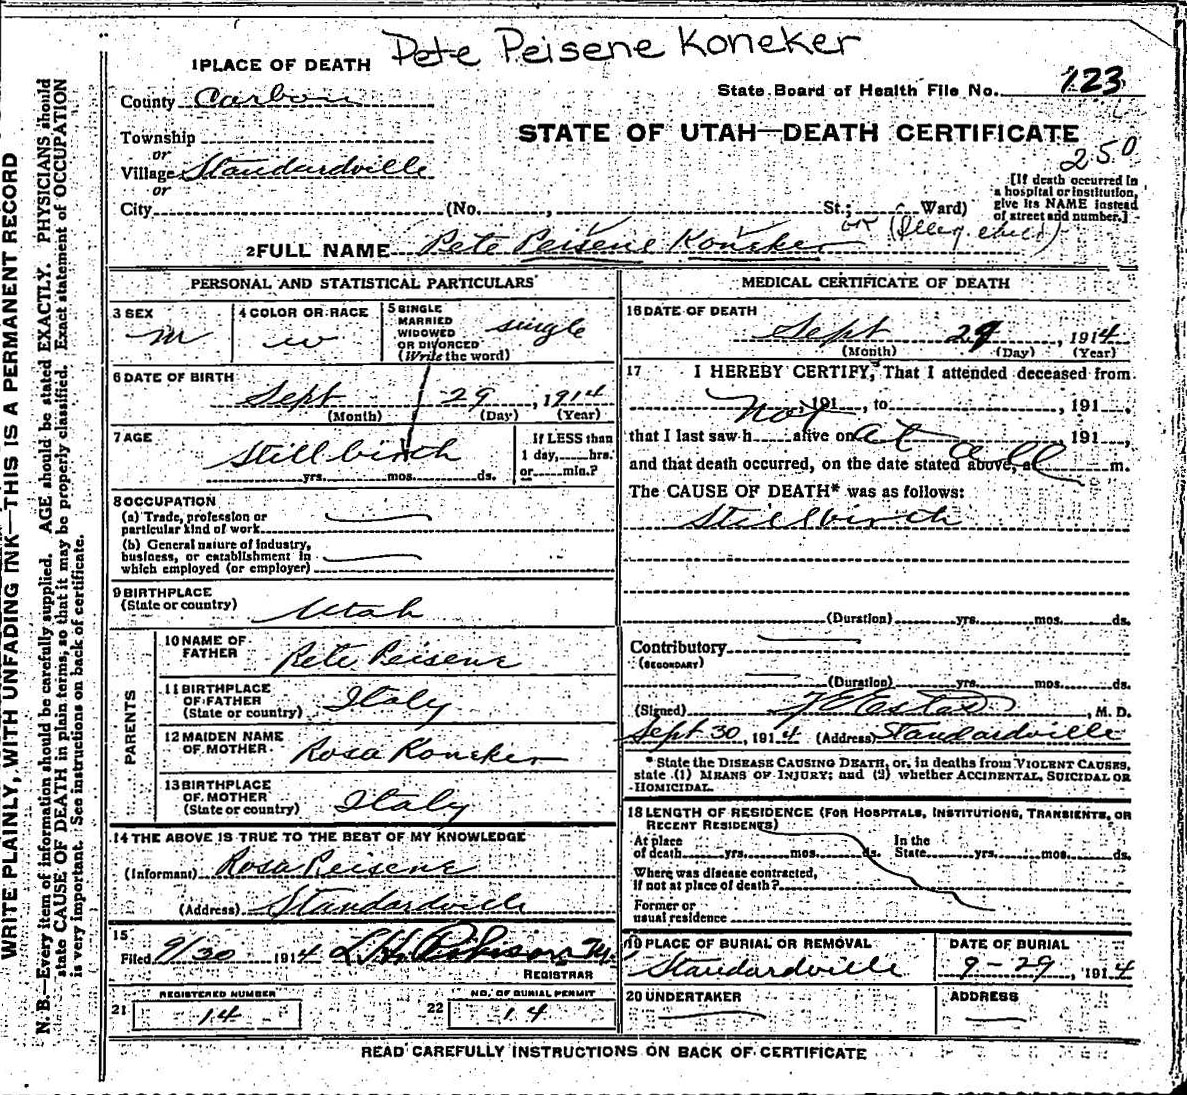 Pete Peisene Koneker
1 PLACE OF DEATH
State Board of Health File No. 123
County Carbon
STATE OF UTAH—DEATH CERTIFICATE
Township
250
or
Village Standardville
or
[If death occurred in a hospital or institution, give its NAME instead of street and number.]
City (No. , St.; Ward)
or (Illeg. child)
2 FULL NAME Pete Peisene Koneker
PERSONAL AND STATISTICAL PARTICULARS
3 SEX
m
4 COLOR OR RACE
w
5 SINGLE
MARRIED
WIDOWED
OR DIVORCED
(Write the word)
single
6 DATE OF BIRTH
Sept 29, 1914
(Month) (Day) (Year)
7 AGE
Stillbirth
yrs. mos. ds.
If LESS than
1 day, hrs.
or min.?
8 OCCUPATION
(a) Trade, profession or
particular kind of work
(b) General nature of industry,
business, or establishment in
which employed (or employer)
9 BIRTHPLACE
(State or country) Utah
PARENTS
10 NAME OF
FATHER Pete Peisene
11 BIRTHPLACE
OF FATHER
(State or country) Italy
12 MAIDEN NAME
OF MOTHER Rosa Koneker
13 BIRTHPLACE
OF MOTHER
(State or country) Italy
14 THE ABOVE IS TRUE TO THE BEST OF MY KNOWLEDGE
(Informant) Rosa Peisene
(Address) Standardville
15
Filed 9/30 1914 L.H.
REGISTRAR
REGISTERED NUMBER
21 14
NO. OF BURIAL PERMIT
22 14
MEDICAL CERTIFICATE OF DEATH
16 DATE OF DEATH
Sept 29, 1914
(Month) (Day) (Year)
17 I HEREBY CERTIFY, That I attended deceased from
not, 191 , to , 191 ,
that I last saw h alive on at 191 ,
and that death occurred, on the date stated above, at all m.
The CAUSE OF DEATH* was as follows:
Stillbirth
(Duration) yrs. mos. ds.
Contributory
(SECONDARY)
(Duration) yrs. mos. ds.
(Signed) , M. D.
Sept 30, 1914 (Address) Standardville
* State the DISEASE CAUSING DEATH, or, in deaths from VIOLENT CAUSES,
state (1) MEANS OF INJURY; and (2) whether ACCIDENTAL, SUICIDAL OR
HOMICIDAL.
18 LENGTH OF RESIDENCE (FOR HOSPITALS, INSTITUTIONS, TRANSIENTS, OR
RECENT RESIDENTS)
At place
of death yrs. mos. ds.
In the
State yrs. mos. ds.
Where was disease contracted,
if not at place of death?
Former or
usual residence
19 PLACE OF BURIAL OR REMOVAL
Standardville
DATE OF BURIAL
9-29, 1914
20 UNDERTAKER
ADDRESS
READ CAREFULLY INSTRUCTIONS ON BACK OF CERTIFICATE
WRITE PLAINLY, WITH UNFADING INK—THIS IS A PERMANENT RECORD
N. B.—Every item of information should be carefully supplied. AGE should be stated EXACTLY. PHYSICIANS should
state CAUSE OF DEATH in plain terms, so that it may be properly classified. Exact statement of OCCUPATION
is very important. See instructions on back of certificate.